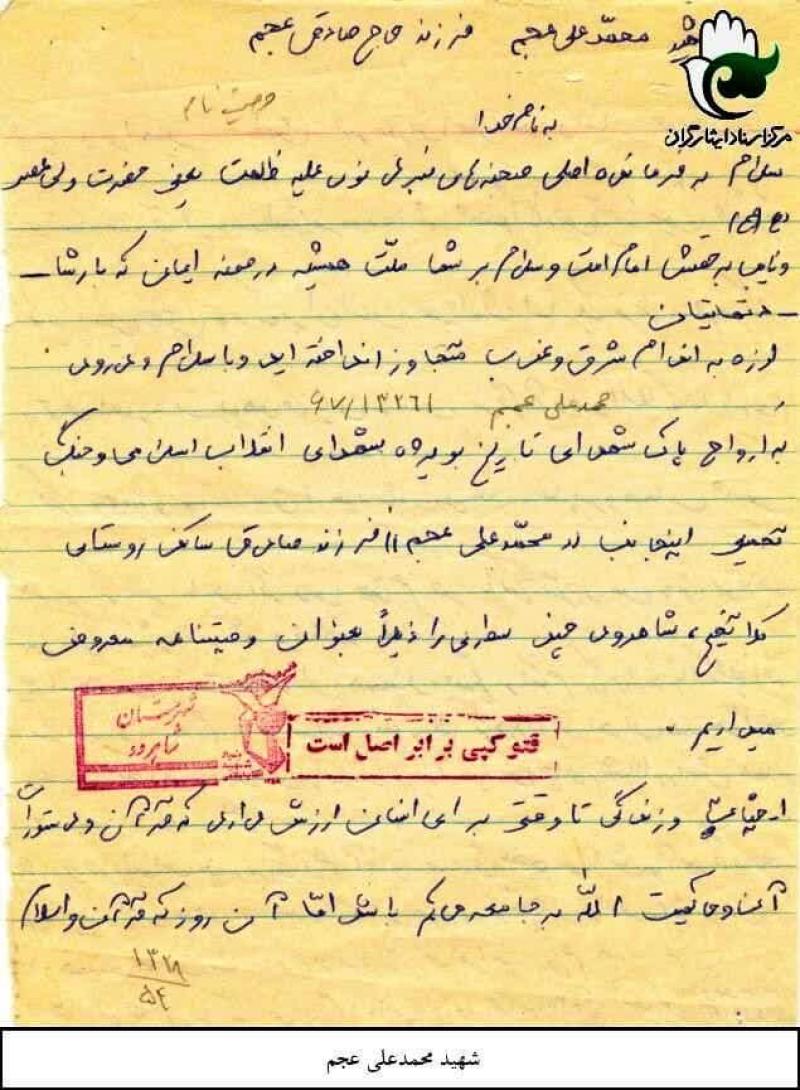 شهید محمدعلی عجم فرزند حاج صادق عجم
مرکز اسناد ایثارگران
وصیت نامه
به نام خدا
سلام به فرمانده اصلی صحنه‌های نبرد نور علیه ظلمت یعنی حضرت ولی عصر
(عج)
و نایب برحقش امام امت و سلام بر شما ملت همیشه در صحنه ایران که با رشا
دتهایتان
لرزه به اندام شرق و غرب متجاوز انداخته اید و با سلام و درود
محمدعلی عجم
به ارواح پاک شهدای تاریخ بویژه شهدای انقلاب اسلامی و جنگ
تحمیلی اینجانب محمدعلی عجم فرزند صادق ساکن روستای
کلاته‌خیج، شاهرود چند سطری را ذیلاً بعنوان وصیتنامه معروض
میدارم.
شهرستان
شاهرود
فتوکپی برابر اصل است
زندگی تا وقتی برای انسان ارزش دارد که قرآن و دستورات
آن و حاکمیت الله بر جامعه حاکم باشد امّا آن روز که قرآن و اسلام
۱۳۲۸
۵۴
شهید محمدعلی عجم